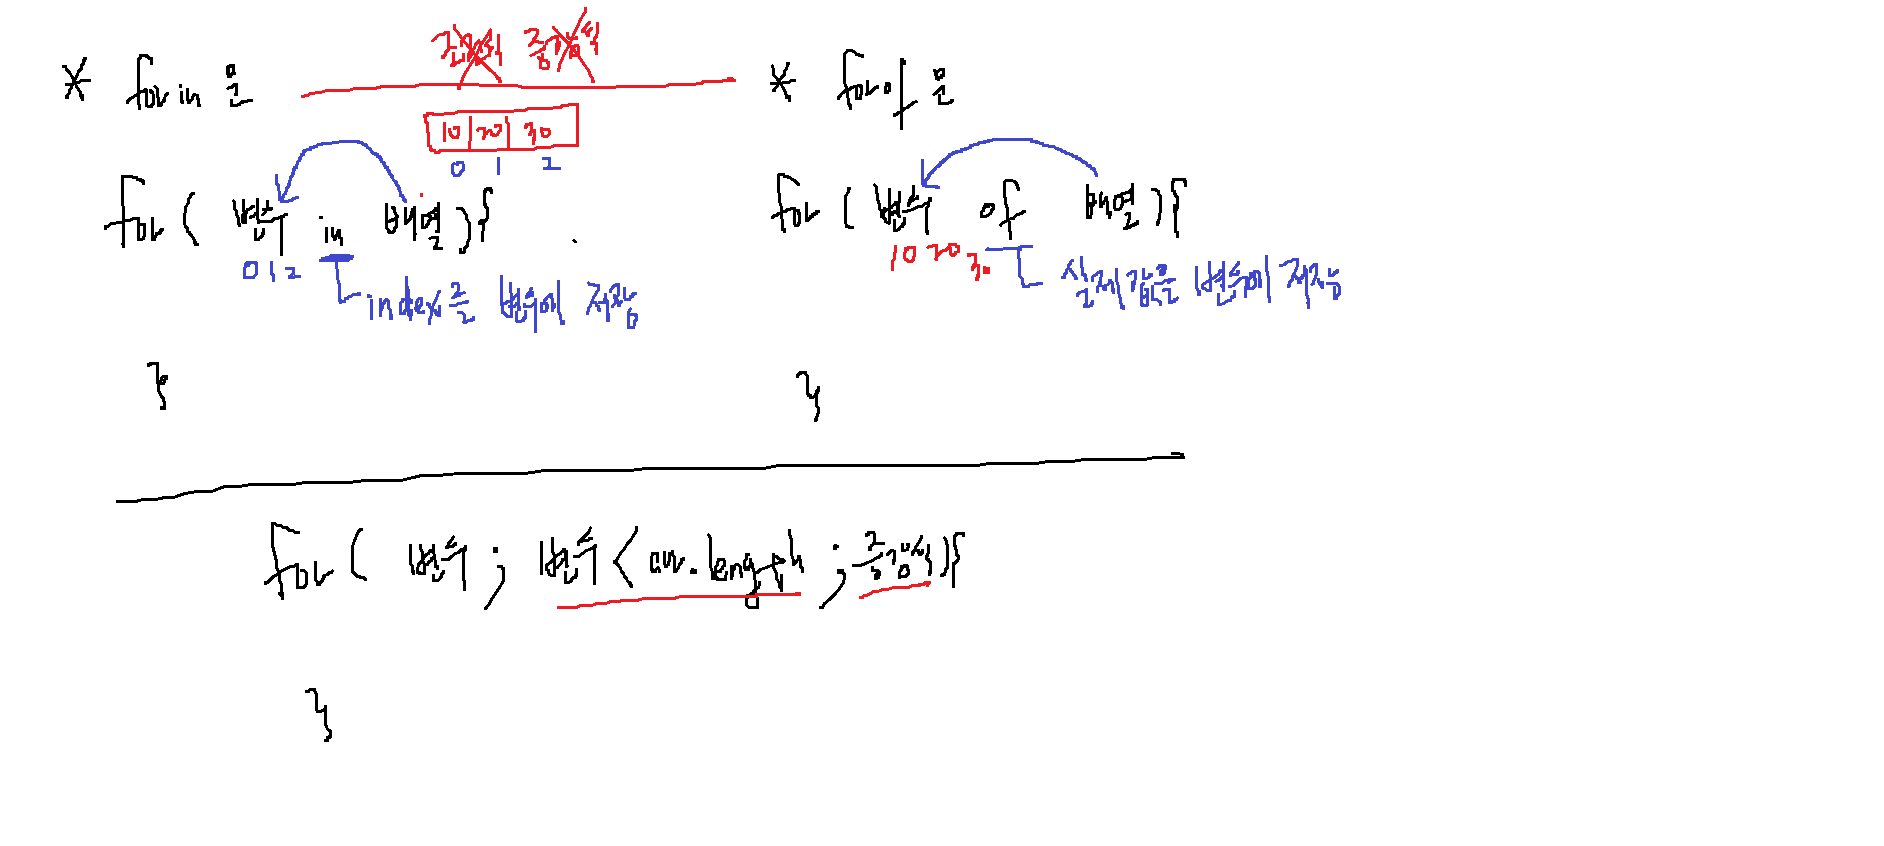 * for in 문
조건식 증감식
* for of 문
10 20 30
0 1 2
for ( 변수 in 배열 ) {
0 1 2
index를 변수에 저장
}
for ( 변수 of 배열 ) {
10 20 30
실제값을 변수에 저장
}
for ( 변수 ; 변수 < arr.length ; 증감식 ) {
}